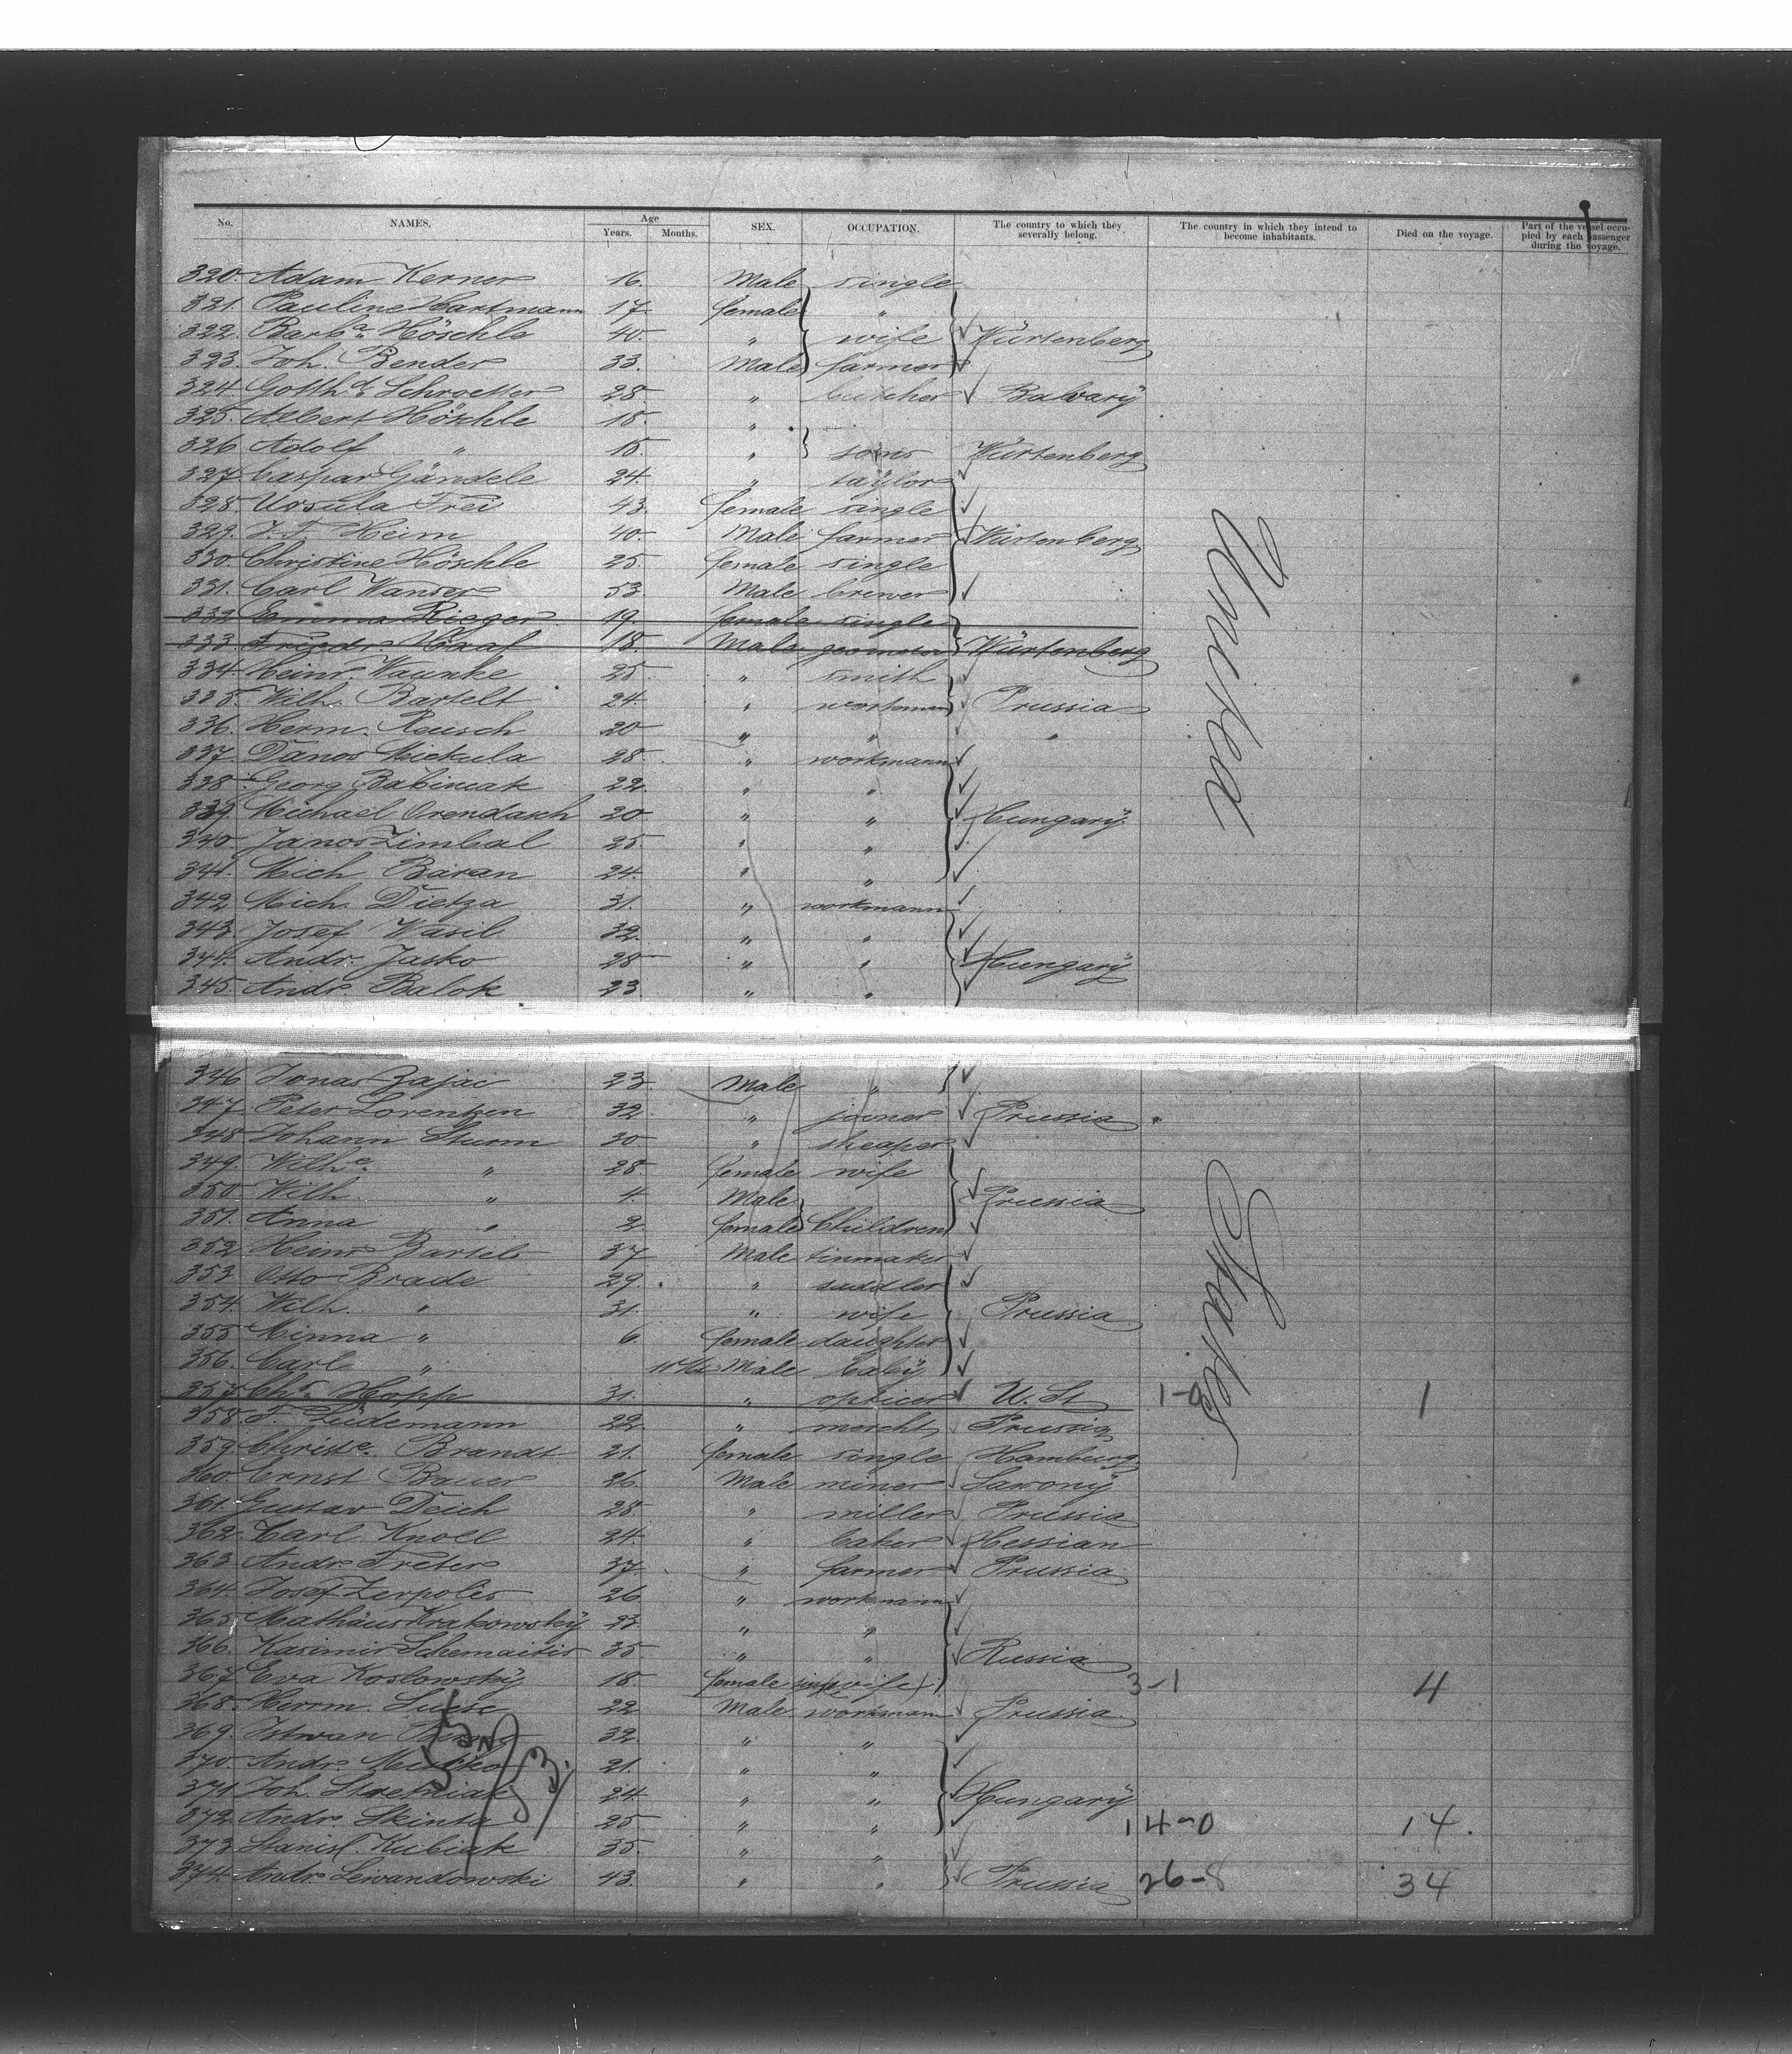 No. NAMES. Age Years. Months. SEX. OCCUPATION. The country to which they severally belong. The country in which they intend to become inhabitants. Died on the voyage. Part of the vessel occupied by each passenger during the voyage.
320. Adam Kerner 16. Male single
321. Pauline Hartmann 17. female "
322. Barba. Höschle 40. " wife Würtenberg
323. Joh. Bender 33. Male farmer
324. Gotthd. Schroetter 28. " butcher Bavary
325. Albert Höschle 18. "
326. Adolf " 15. " sons Würtenberg
327. Caspar Gändele 24. " taylor
328. Ursula Frei 43. female single
329. J. F. Heim 40. Male farmer Würtenberg
330. Christine Höschle 25. female single
331. Carl Wanser 53 Male brewer
332 Emma Rieger 19. female single
333. Friedr. Haaf 18. Male Würtenberg
334. Heinr. Waunke 25 " smith
335. Wilh. Bartelt 24. " workman Prussia
336. Herm. Reusch 20 " " "
337. Danos Mickula 28 " workmann
338. Georg Babincak 22. " "
339. Michael Orendasch 20 " " Hungary
340. Janos Zimbal 25. " "
341. Mich Baran 24. " "
342. Mich. Dietza 31. " workmann
343. Josef Wasil 32. " "
344. Andr. Jasko 28 " " Hungary
345. Andr. Balok 23. " "
346 Jonas Zajac 23. Male "
347. Peter Lorentzen 32. " joiner Prussia
348. Johann Sturm 30 "
349. Wilhe. " 28. female wife
350. Wilh. " 4. Male Prussia
351. Anna " 2. female Children
352. Heinr. Bartels 37 Male tinmaker
353 Otto Brade 29. " saddler
354. Wilh. " 31. " wife Prussia
355. Minna " 6. female daughter
356. Carl " Male baby
357. Chr. Hopp 31. " optician U. St 1-0 1
358. F. Lüdemann 22. " mercht Prussia
359. Christe. Brandt 21. female single Hamburg
360. Ernst Bauer 26. Male miner Saxony
361. Gustav Deich 28. " miller Prussia
362. Karl Knoll 24. " baker Hessian
363. Andr. Treter 37. " farmer Prussia
364. Josef Zerpolis 26 " workmann
365. Mathäus Krakowsky 23. " "
366. Kasimir Schemaitis 35. " " Russia
367. Eva Koslowsky 18. female wife 3-1 4
368. Herrm. Luise 22 Male workmann Prussia
369. Istwan 32. " "
370. Andr. 21. " "
371. Joh. 24. " " Hungary
372. Andr. Skinta 25 " " 14-0 14.
373. Stanisl. Kubiak 35. " "
374. Andr. Lewandowski 43. " " Prussia 26-8 34
United
States